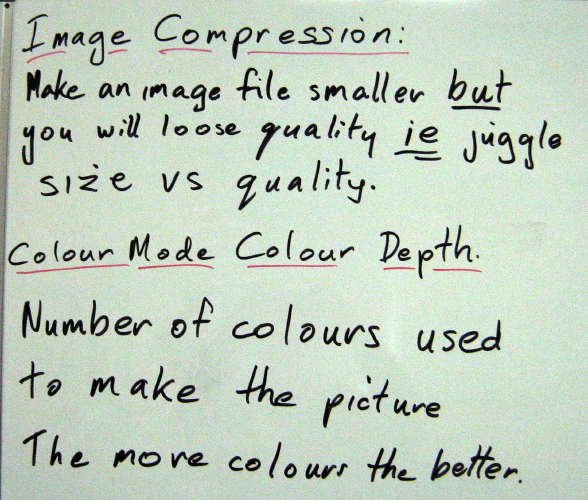 Image Compression:
Make an image file smaller but
you will loose quality ie juggle
size vs quality.
Colour Mode Colour Depth.
Number of colours used
to make the picture
The more colours the better.